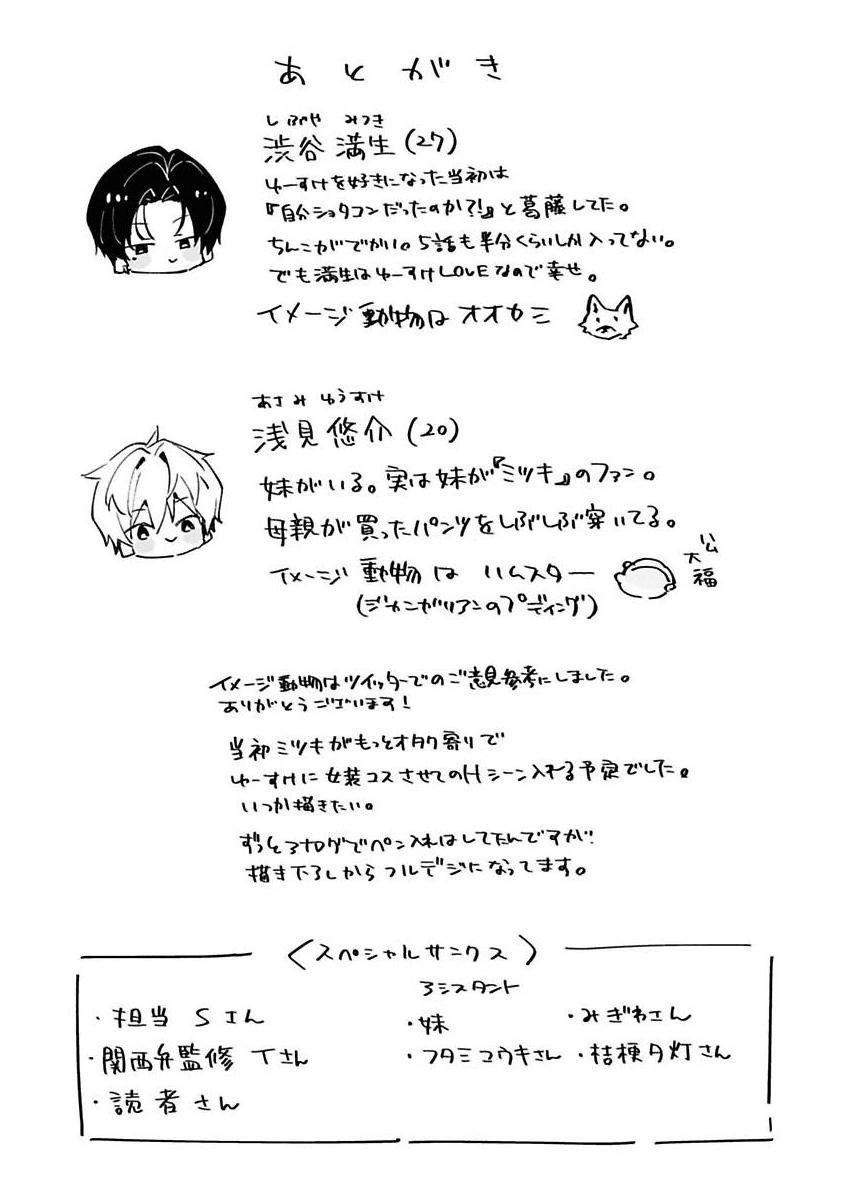 あとがき
しぶや みつき
渋谷 満生(27)
ゆーすけを好きになった当初は
『自分ショタコンだったのか?!』と葛藤してた。
ちんこがでかい。5話も半分くらいしか入ってない。
でも満生はゆーすけLOVEなので幸せ。
イメージ動物はオオカミ
あさみ ゆうすけ
浅見悠介(20)
妹がいる。実は妹が『ミツキ』のファン。
母親が買ったパンツをしぶしぶ穿いてる。
イメージ動物は ハムスター
(ジャンガリアンのプディング)
ハム
大福
イメージ動物はツイッターでのご意見参考にしました。
ありがとうございます!
当初ミツキがもっとオタク寄りで
ゆーすけに女装コスさせてのHシーン入れる予定でした。
いつか描きたい。
ずっとアナログでペン入れはしてたんですが
描き下ろしからフルデジになってます。
〈スペシャルサンクス〉
・担当 Sさん
・関西弁監修 Tさん
・読者さん
アシスタント
・妹
・フタミコウキさん
・みぎわさん
・桔梗夕灯さん